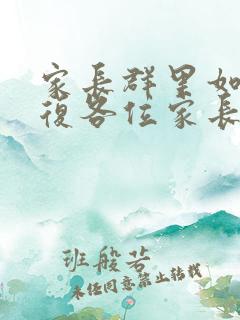 家長群里如
復各位家長
班般若
未经同意禁止转载